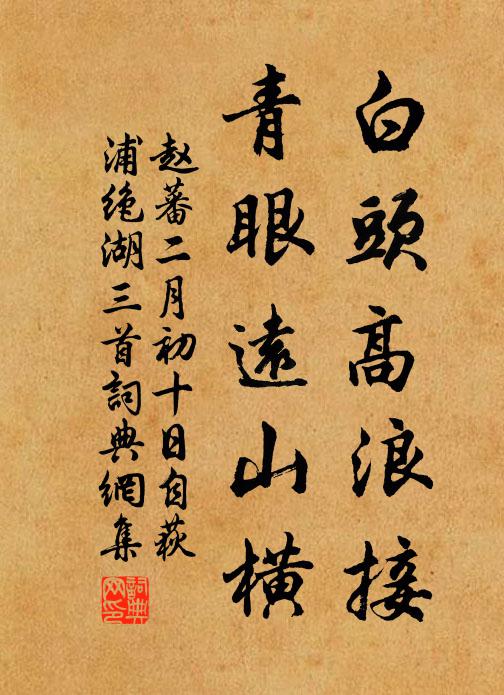 白頭高浪接
青眼遠山橫
赵蕃二月初十日自荻
浦绝湖三首詞典網集
詞典網印